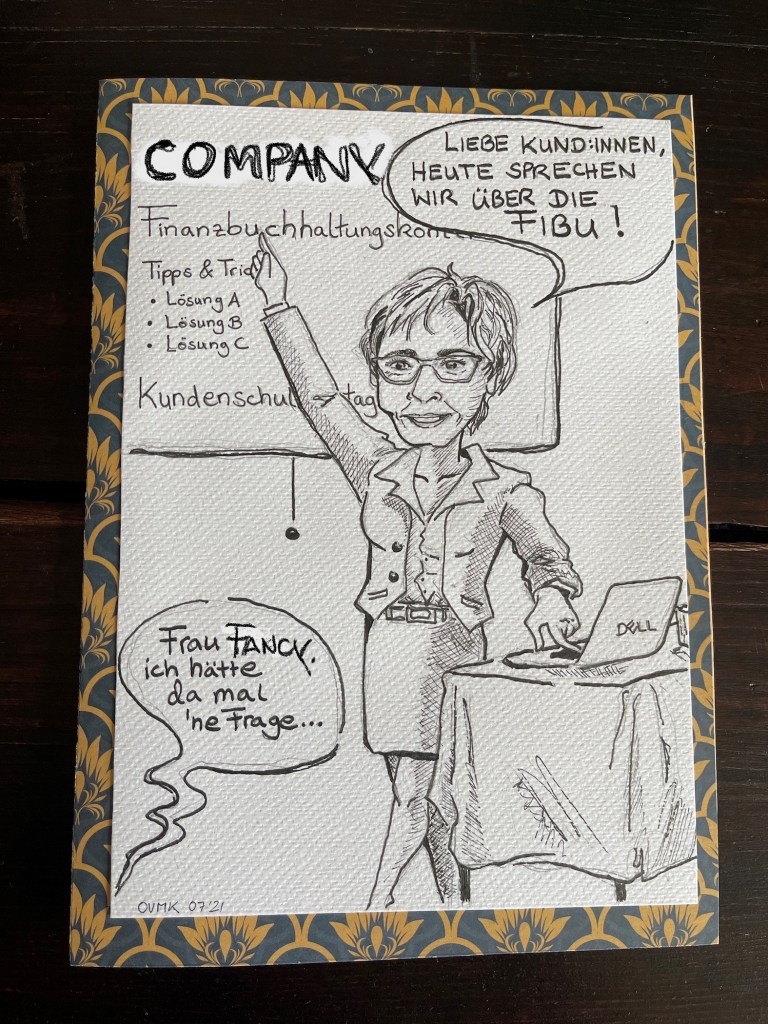 COMPANY
LIEBE KUND:INNEN,
HEUTE SPRECHEN
WIR ÜBER DIE
FIBU!
Finanzbuchhaltungskonte
Tipps & Tric
• Lösung A
• Lösung B
• Lösung C
Kundenschul tag
DELL
Frau FANCY,
ich hätte
da mal
'ne Frage...
OVMK 07'21